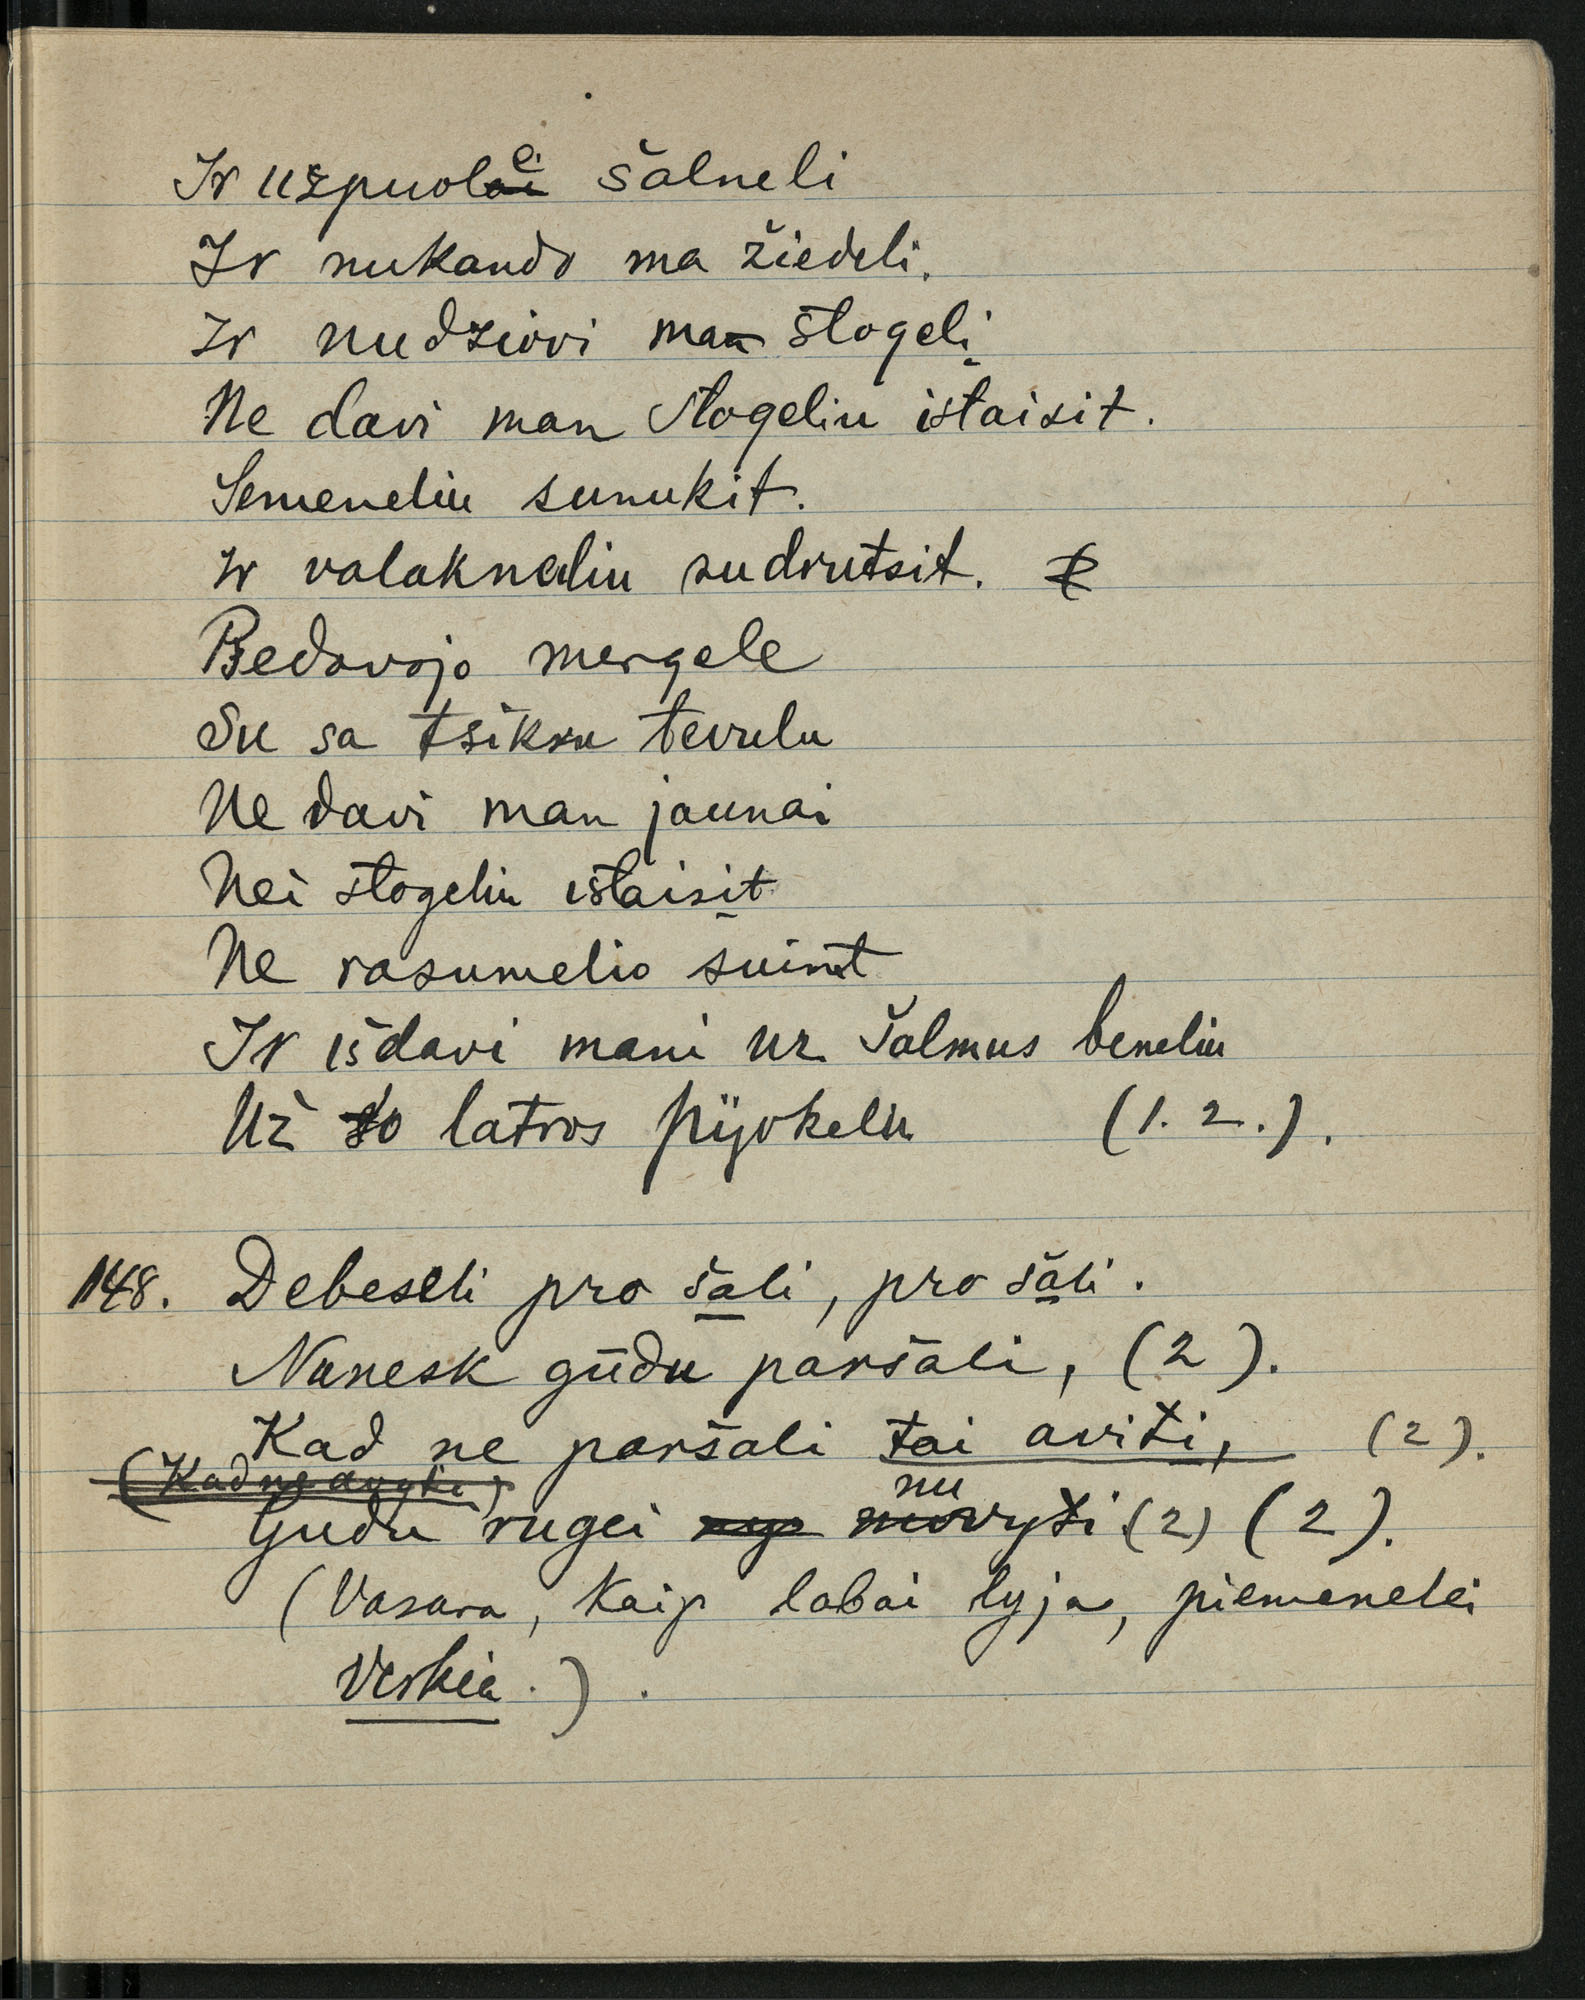 Ir užpuolei šalneli
Ir nukando ma žiedeli.
Ir nudziovi ma stogeli
Ne davi man stogeliu istaisit.
Semeneliu sunukit.
Ir valakneliu sudrutsit.
Bedavojo mergele
Su sa tsikru tevulu
Ne davi man jaunai
Nei stogeliu istaisit
Ne rasumelio suimt
Ir išdavi mani uz šalmus beneliu
Už to latros pijokeliu (1. 2.).
148. Debeseli pro šali, pro šali.
Nunesk gudu paršali, (2).
Kad ne paršali tai aviti, (2).
(Kad ne avyti)
Gudu rugei nuvyti (2) (2).
(Vasara, kaip labai lyja, piemenelei
verkia.).